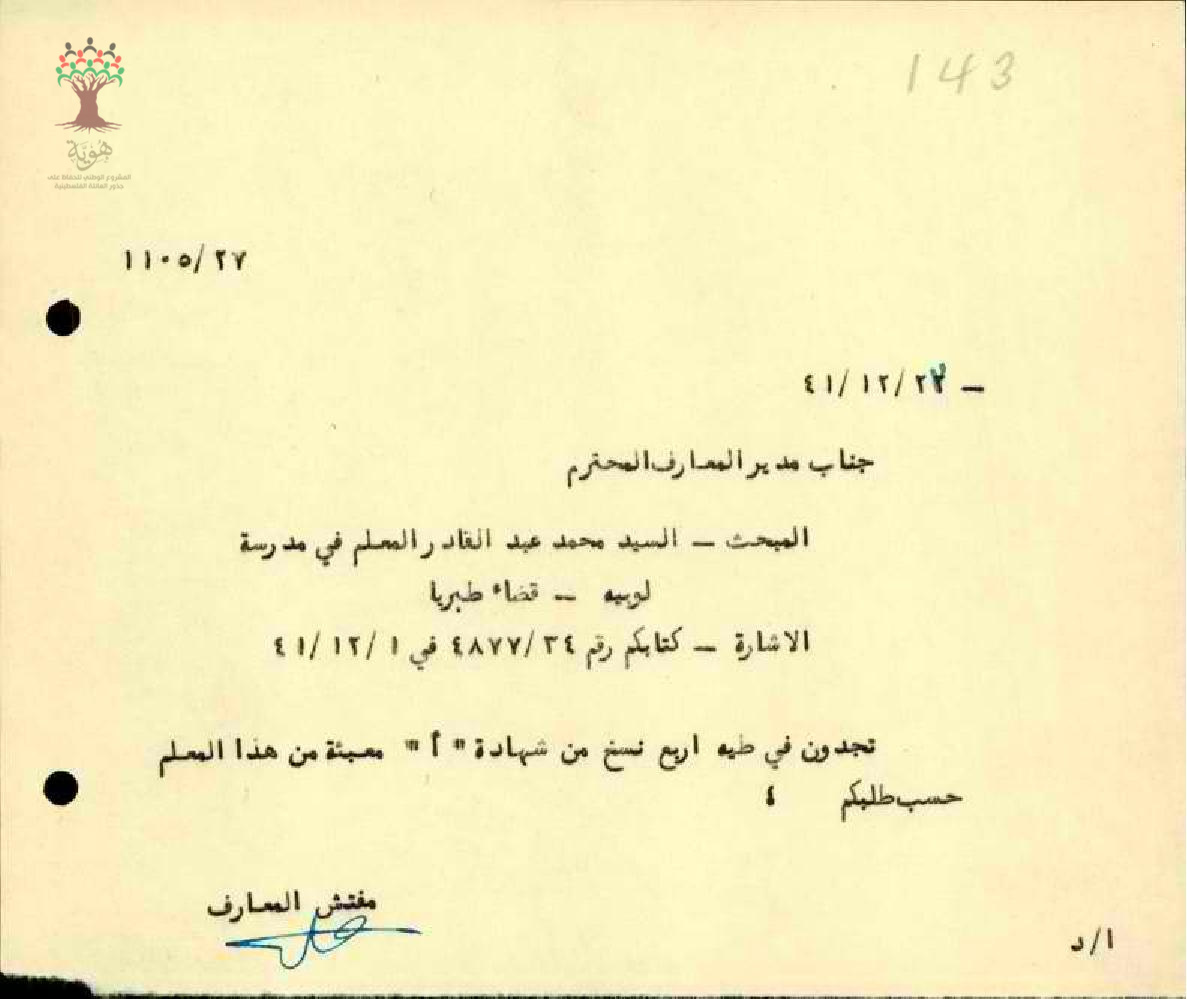 143
هوية
المشروع الوطني للحفاظ على
جذور العائلة الفلسطينية
١١٠٥/٢٧
٤١/١٢/٢٢ —
جناب مدير المعارف المحترم
المبحث — السيد محمد عبد القادر المعلم في مدرسة
لوبيه — قضاء طبريا
الاشارة — كتابكم رقم ٤٨٧٧/٣٤ في ٤١/١٢/١
تجدون في طيه اربع نسخ من شهادة " أ " معبئة من هذا المعلم
حسب طلبكم ٤
مفتش المعارف
ا/د